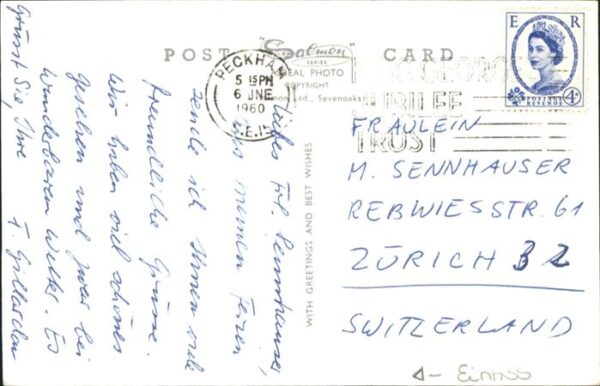 POST CARD
"Salmon"
SERIES
REAL PHOTO
COPYRIGHT
Salmon Ltd., Sevenoaks
WITH GREETINGS AND BEST WISHES
PECKHAM
5 15PM
6 JNE
1960
S.E.15
KING GEORGE
JUBILEE
TRUST
E R
POSTAGE
REVENUE
4D
Liebes Frl. Sennhauser,
Aus meinen Ferien
sende ich Ihnen viele
freundliche Grüsse.
Wir haben viel schönes
gesehen und zwar bei
wunderbarem Wetter. Es
grüsst Sie, Ihre
FRÄULEIN
M. SENNHAUSER
REBWIESSTR. 61
ZÜRICH 32
SWITZERLAND